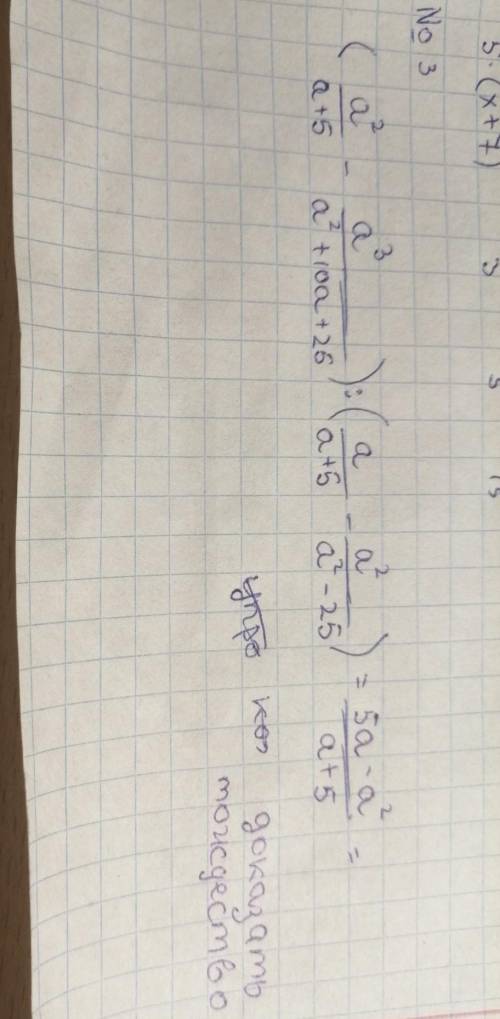 5·(x+7) 3 5 15
№ 3
(a²/(a+5) - a³/(a²+10a+25)) : (a/(a+5) - a²/(a²-25)) = (5a-a²)/(a+5) =
доказать
тождество